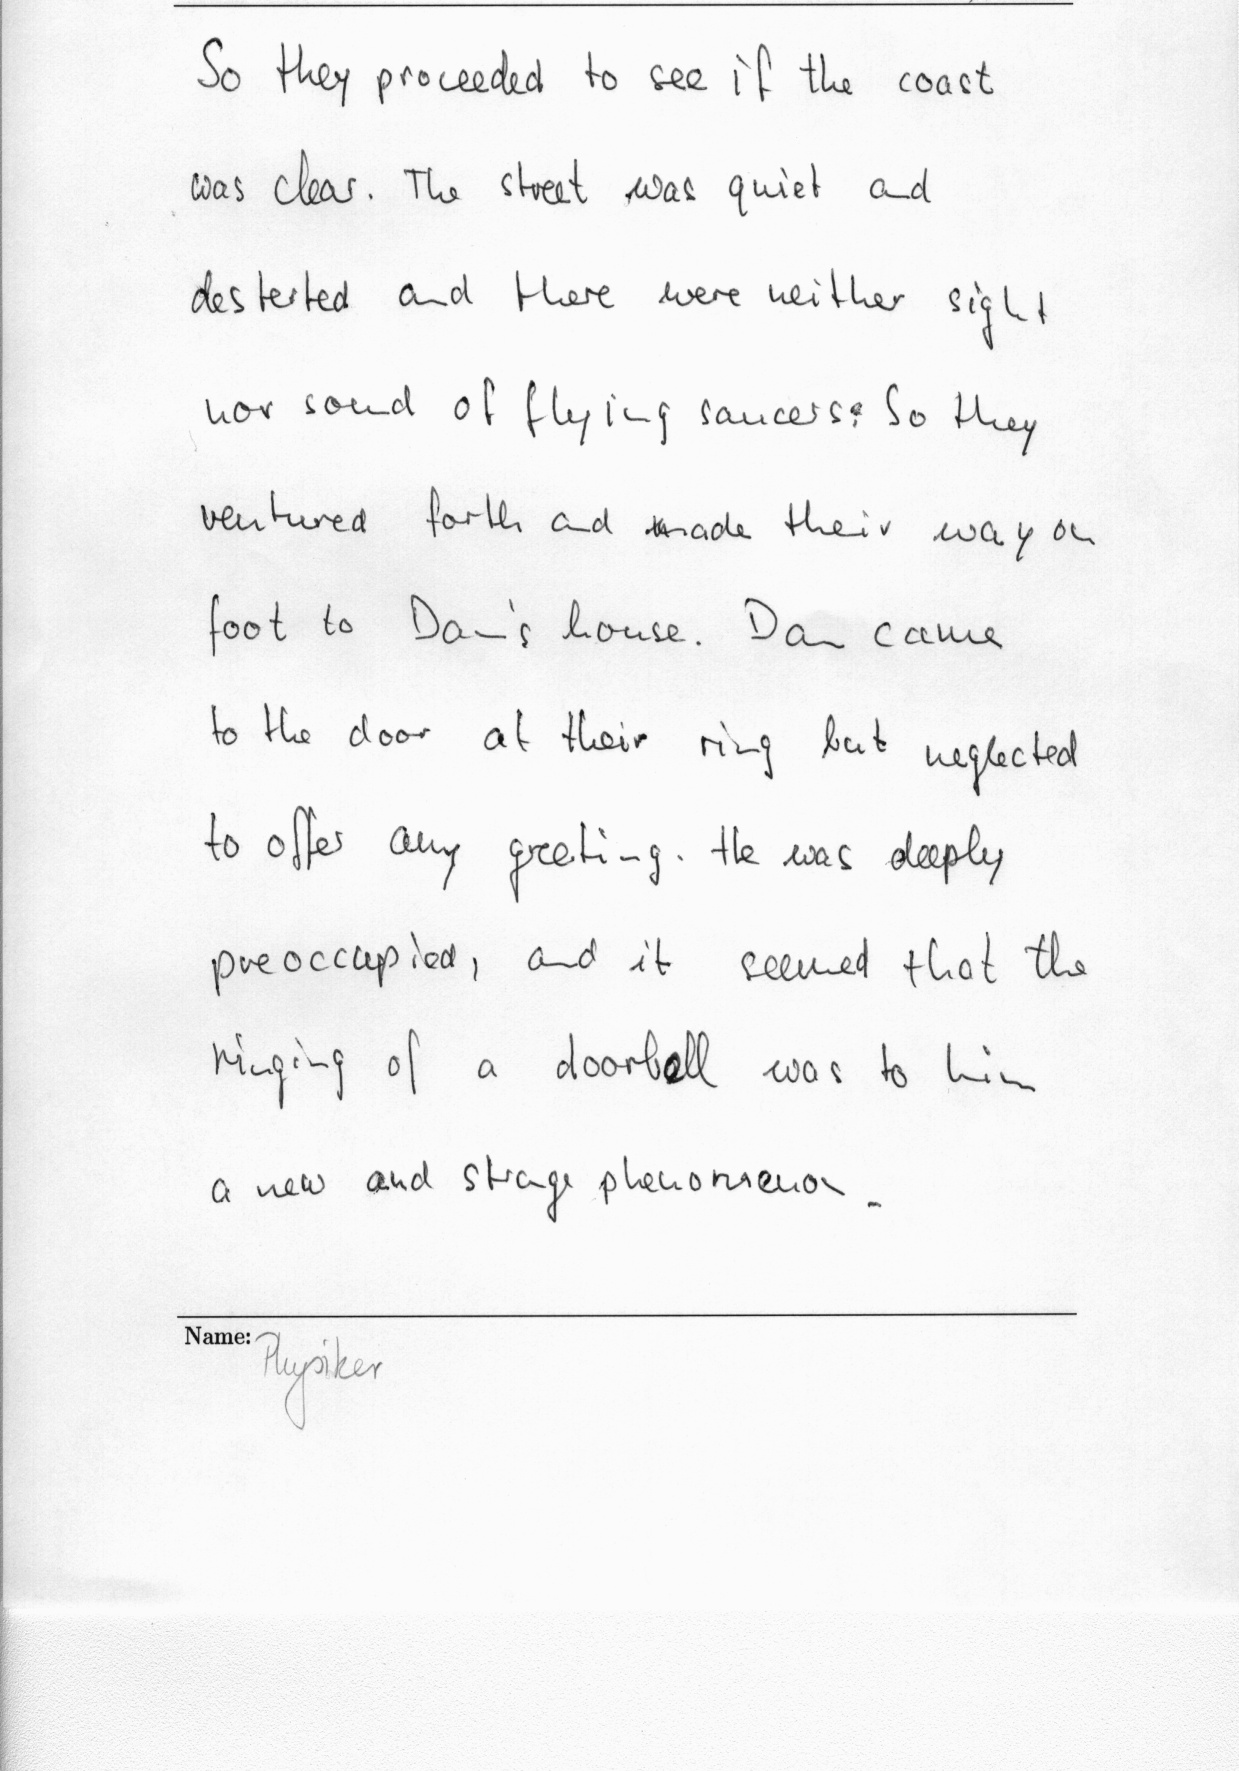 So they proceeded to see if the coast
was clear. The street was quiet and
desterted and there were neither sight
nor sound of flying saucers: So they
ventured forth and made their way on
foot to Dan's house. Dan came
to the door at their ring but neglected
to offer any greeting. He was deeply
preoccupied, and it seemed that the
ringing of a doorbell was to him
a new and strage phenomenon.
Name: Physiker